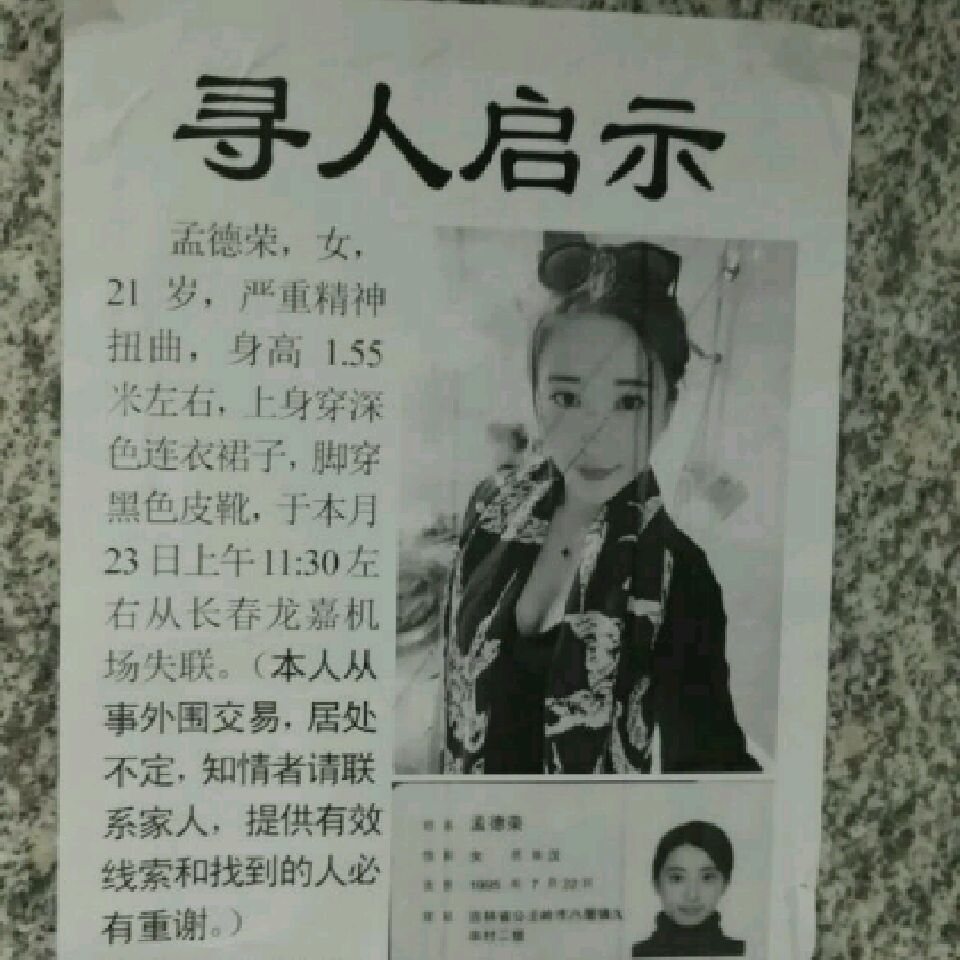 寻人启示
孟德荣，女，
21 岁，严重精神
扭曲，身高 1.55
米左右，上身穿深
色连衣裙子，脚穿
黑色皮靴，于本月
23日上午11:30左
右从长春龙嘉机
场失联。（本人从
事外围交易，居处
不定，知情者请联
系家人，提供有效
线索和找到的人必
有重谢。）
孟德荣
女
1995 年 7 月 22日